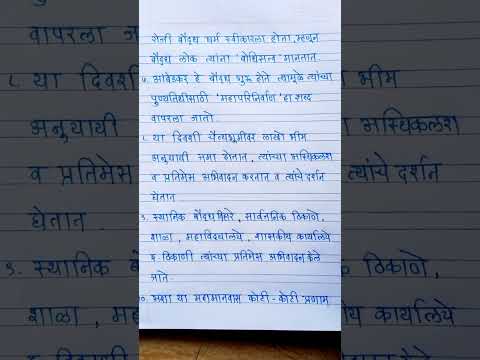 येनी बौद्ध धर्म स्वीकारला होता, म्हणून
बौद्ध लोक त्यांना 'बोधिसत्व' मानतात.
७. आंबेडकर हे बौद्ध गुरू होते त्यामुळे त्यांच्या
पुण्यतिथीसाठी 'महापरिनिर्वाण' हा शब्द
वापरला जातो.
८ या दिवशी चैत्यभूमीवर लाखो भीम
अनुयायी जमा होतात, त्यांच्या अस्थिकलश
व प्रतिमेस अभिवादन करतात व त्यांचे दर्शन
घेतात
९. स्थानिक बौद्ध विहारे, सार्वजनिक ठिकाणे,
शाळा, महाविद्यालये, शासकीय कार्यालये
इ ठिकाणी त्यांच्या प्रतिमेस अभिवादन केले
जाते.
१०. अशा या महामानवास कोटी-कोटी प्रणाम